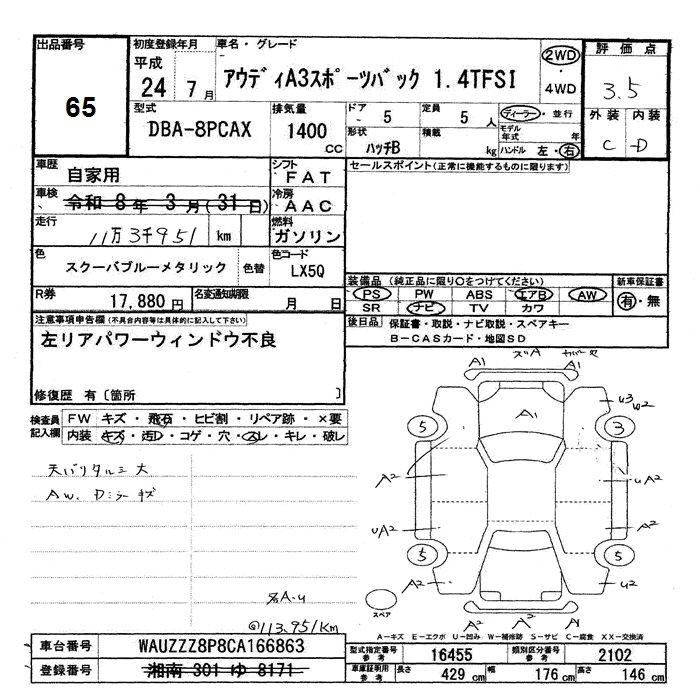 出品番号
65
初度登録年月
平成
24 年 7 月
車名・グレード
アウディA3スポーツバック 1.4TFSI
2WD
・
4WD
評価点
3.5
外装 内装
C -D
型式
DBA-8PCAX
排気量
1400 CC
ドア
- 5
形状
ハッチB
定員
5 人
積載
kg
ディーラー ・ 並行
モデル年式 年
ハンドル 左・右
車歴
自家用
シフト
FAT
セールスポイント(正常に機能するものに限ります)
車検
令和 8年 3月(31日)
冷房
AAC
走行
11万3千951 km
燃料
ガソリン
色
スクーバブルーメタリック
色替
色コード
LX5Q
R券
17,880円
名変通知期限
月 日
装備品 (純正品に限り○をつけてください)
新車保証書
PS PW ABS エアB AW
SR ナビ TV カワ
有・無
後日品
保証書・取説・ナビ取説・スペアキー
B-CASカード・地図SD
注意事項申告欄(不具合内容等は具体的に記入して下さい)
左リアパワーウィンドウ不良
修復歴 有〔箇所 〕
検査員記入欄
FW キズ・飛石・ヒビ割・リペア跡・×要
内装 キズ・汚レ・コゲ・穴・スレ・キレ・破レ
天バリタルミ大
AW. Dミラーキズ
@113.951km
A1 A1
A1
5 3
u3 u2
A2 uA2
uA2 A2
5 5
A2 u2
A2 A2 A1
スペア
A-キズ E-エクボ U-凹み W-補修跡 S-サビ C-腐食 XX-交換済
車台番号
WAUZZZ8P8CA166863
登録番号
湘南 301 ゆ 8171
型式指定番号 参考
16455
類別区分番号 参考
2102
車庫証明用 参考
長さ 429 cm 幅 176 cm 高さ 146 cm